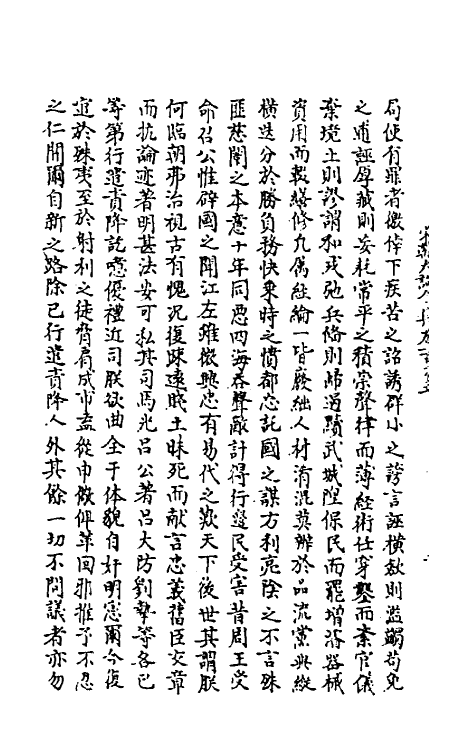 局使有罪者僥倖下疾苦之詔誘群小之謗言誣横敛則滥蠲苟免
之逋誣厚藏則妄耗常平之積崇聲律而薄經術任穿鑿而紊官儀
棄境土則謬謂和戎弛兵備則歸過黷武城隍保民而罷增濬器械
資用而輟繕修凡属經綸一皆廢絀人材淆混莫辨於品流黨與縱
横迭分於勝負務快乘時之憤都忘託國之謀方利亮陰之不言殊
匪慈闈之本意十年同惡四海吞聲敵計得行邉民受害昔周王受
命召公惟辟國之聞江左雖微興忠有易代之歎天下後世其謂朕
何臨朝弗治視古有愧况復踈遠賤士昧死而献言忠義舊臣交章
而抗論迹著明甚法安可私其司馬光吕公著吕大防劉摯等各已
等第行遣責降訖噫優禮近司朕欲曲全于体貌自奸明憲爾今復
寘於殊死至於射利之徒脅肩成市盍從申儆俾革回邪推予不忍
之仁開爾自新之路除已行遣責降人外其餘一切不問議者亦勿